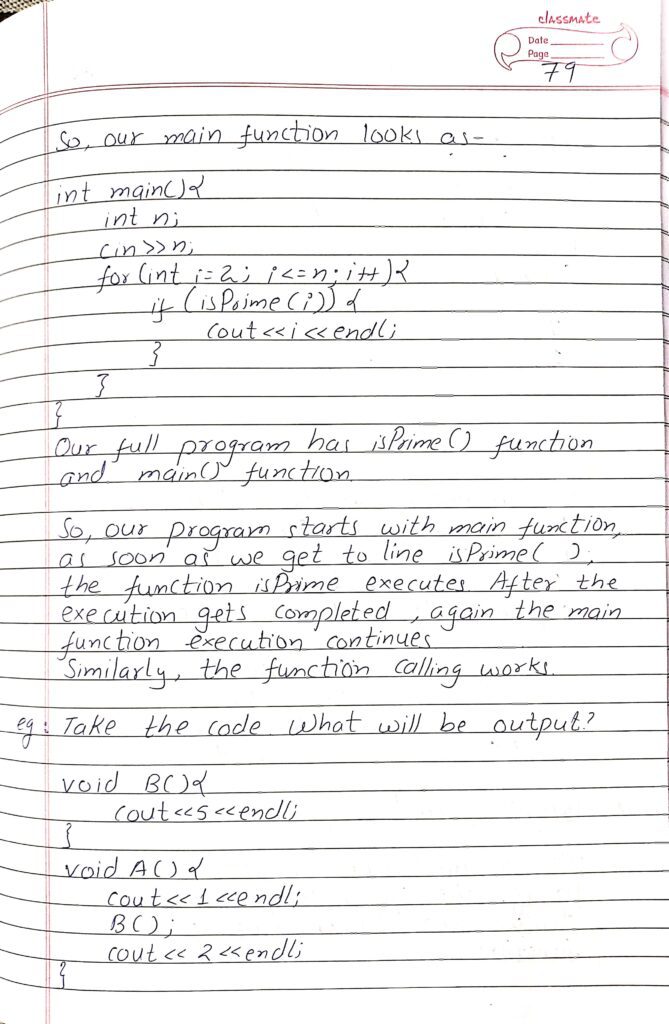 classmate
Date
Page
79
So, our main function looks as-
int main(){
int n;
cin>>n;
for (int i=2; i<=n; i++){
if (isPrime(i)) {
cout<<i<<endl;
}
}
}
Our full program has isPrime() function
and main() function.
So, our program starts with main function,
as soon as we get to line isPrime( ),
the function isPrime executes. After the
execution gets completed, again the main
function execution continues
Similarly, the function calling works.
eg: Take the code. What will be output?
void B(){
cout<<5<<endl;
}
void A(){
cout<<1<<endl;
B();
cout<<2<<endl;
}